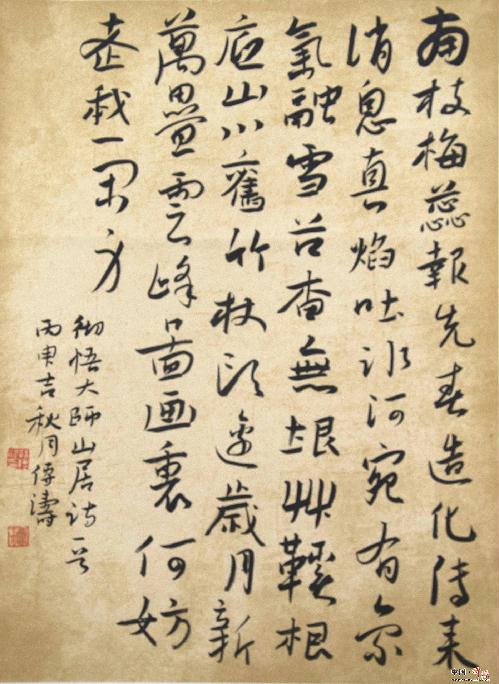 南枝梅蕊報先春造化傳来
消息真焰吐冰河宛有象
氣融雪谷杳無垠艸鞋根
底山川舊竹杖頭邊歲月新
萬疊雲峰圖画裏何妨
老我一閑身
徹悟大師山居詩一首
丙申吉秋月傳濤